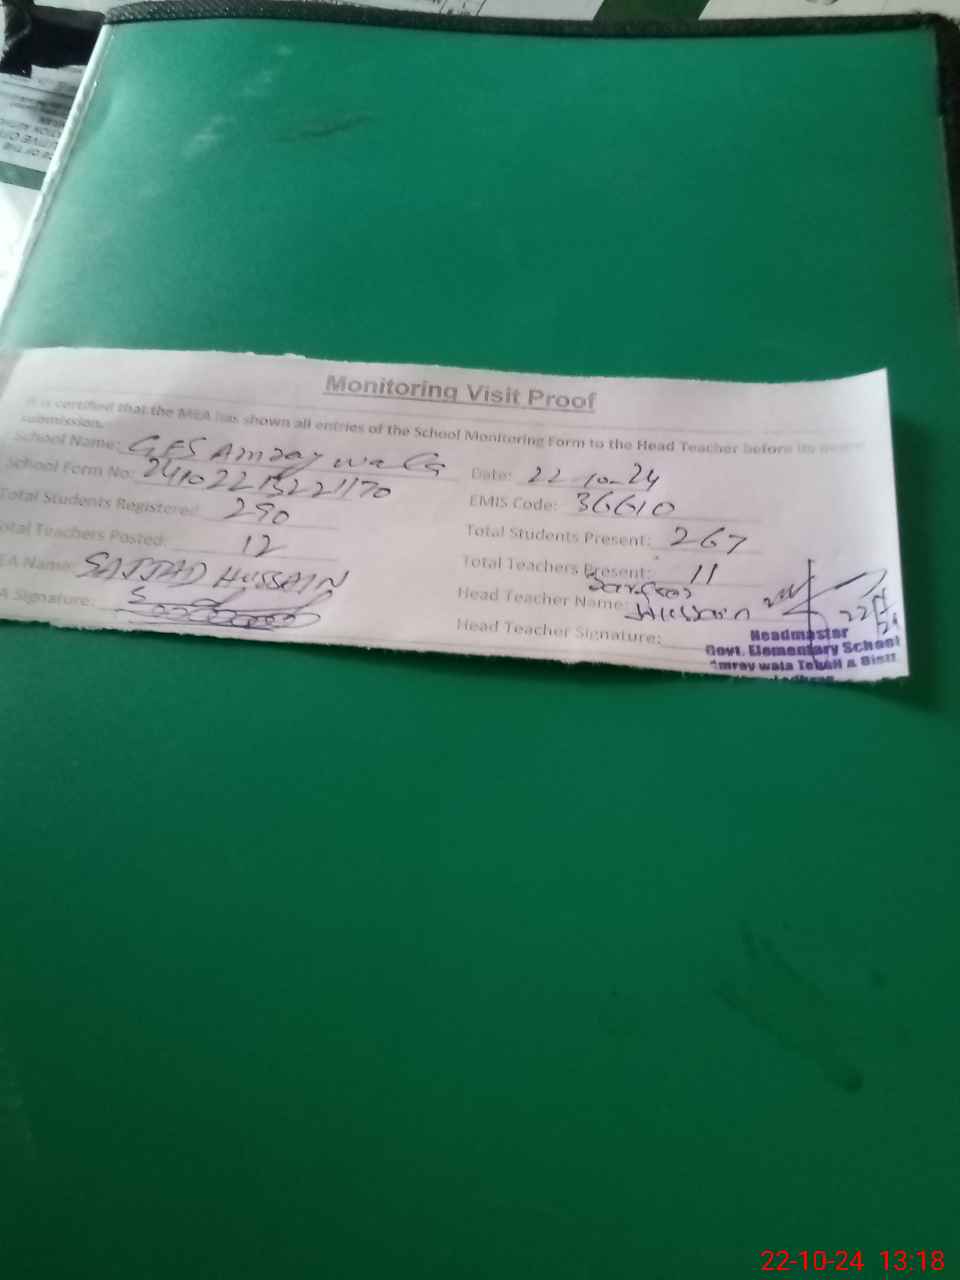 Monitoring Visit Proof
It is certified that the MEA has shown all entries of the School Monitoring Form to the Head Teacher before its
submission.
School Name: GES Amray wala
Date: 22-10-24
School Form No: 
EMIS Code: 36610
Total Students Registered: 290
Total Students Present: 267
Total Teachers Posted: 12
Total Teachers Present: 11
EA Name: SAJJAD HUSSAIN
Head Teacher Name: Hussain
A Signature:
Head Teacher Signature:
Headmaster
Govt. Elementary School
Amray wala Tehsil & Distt
22-10-24 13:18